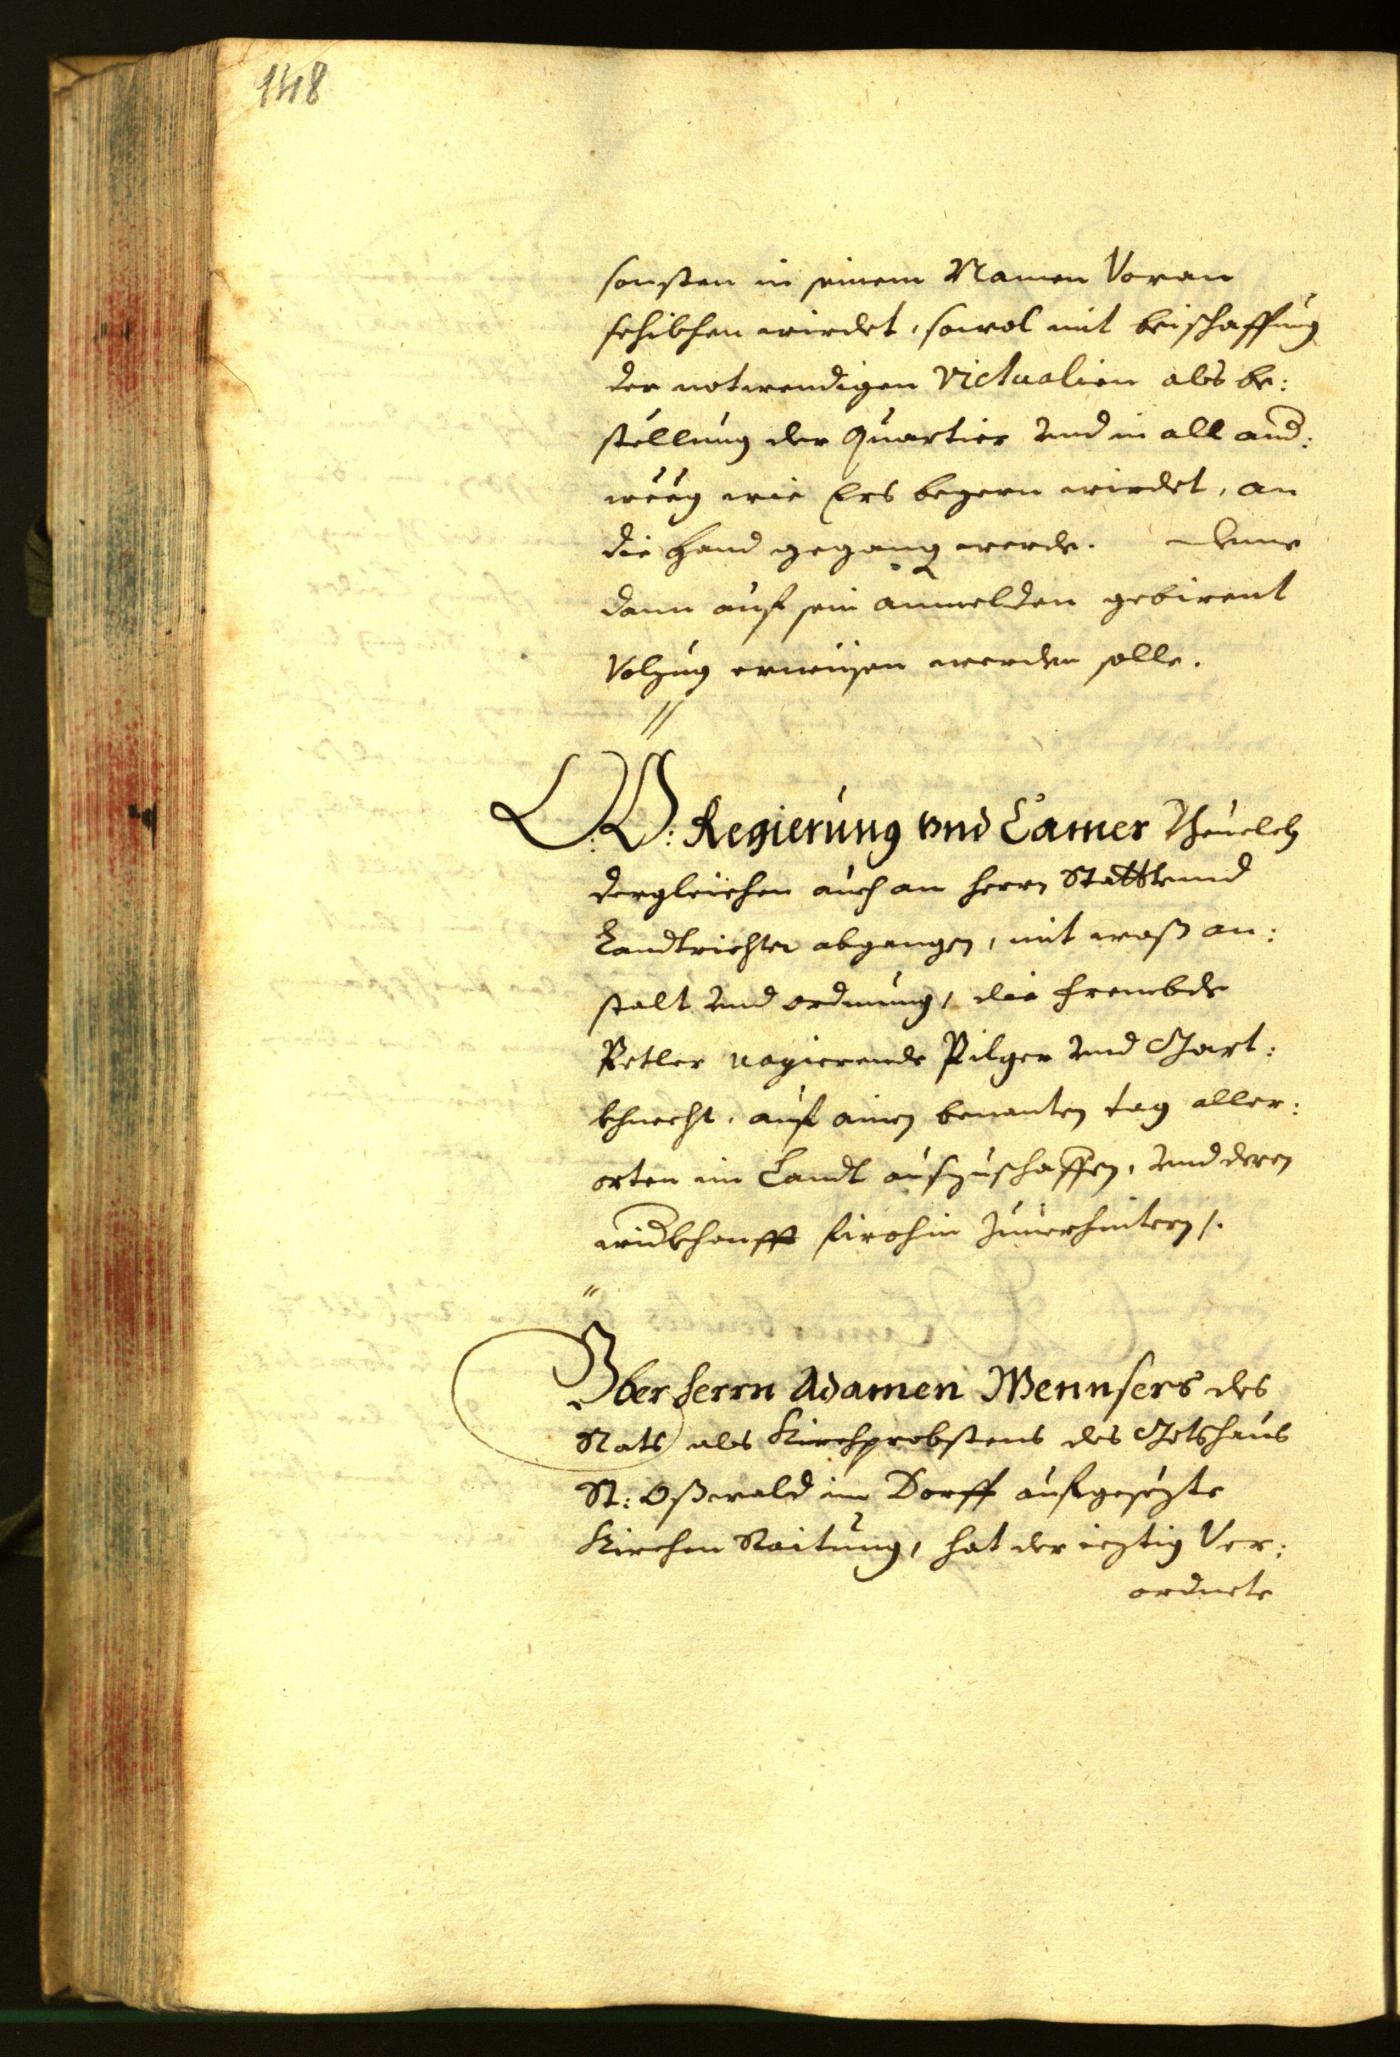 148
sonsten in seinem Namen Voran
schikhen wirdet, sowol mit beischaffung
der notwendigen Victualien als be:
stellung der Quartier und in all and:
weeg wie Ers begern wirdet, an
die Hand gegang werde. Deme
dann auf sein anmelden gebirent
Volzug erwisen werden solle.
O: Ö: Regierung vnd Camer Beuelch
dergleichen auch an Herrn Statt und
Landtrichter abgangen, mit waß an:
stalt und ordnung, die frembde
Petler vagierende Pilger und Gart:
khnecht, auf ainen benanten tag aller:
orten im Landt aufzuschaffen, und deren
widkhonfft firohin zuuerhintern /.
Vber Herrn Adamen Wennsers des
Rats als Kirchprobstens des Gotshaus
St: Oßwald im Dorff aufgesezte
Kirchen Raitung, hat der ieztig Ver:
ordnete